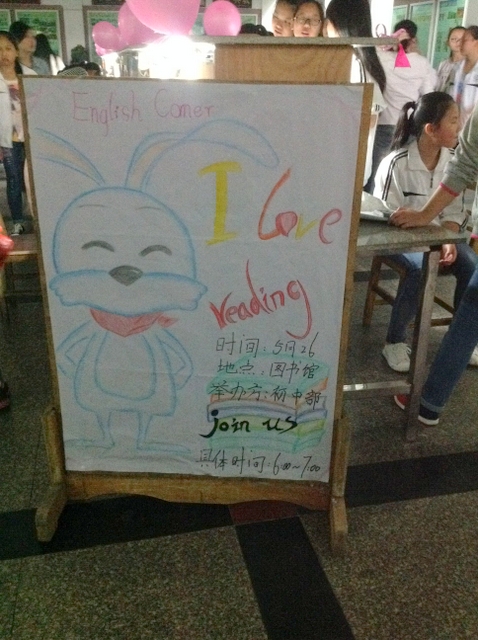 English Corner
I Love
reading
时间：5月26
地点：图书馆
举办方：初中部
join us
具体时间：6:00~7:00